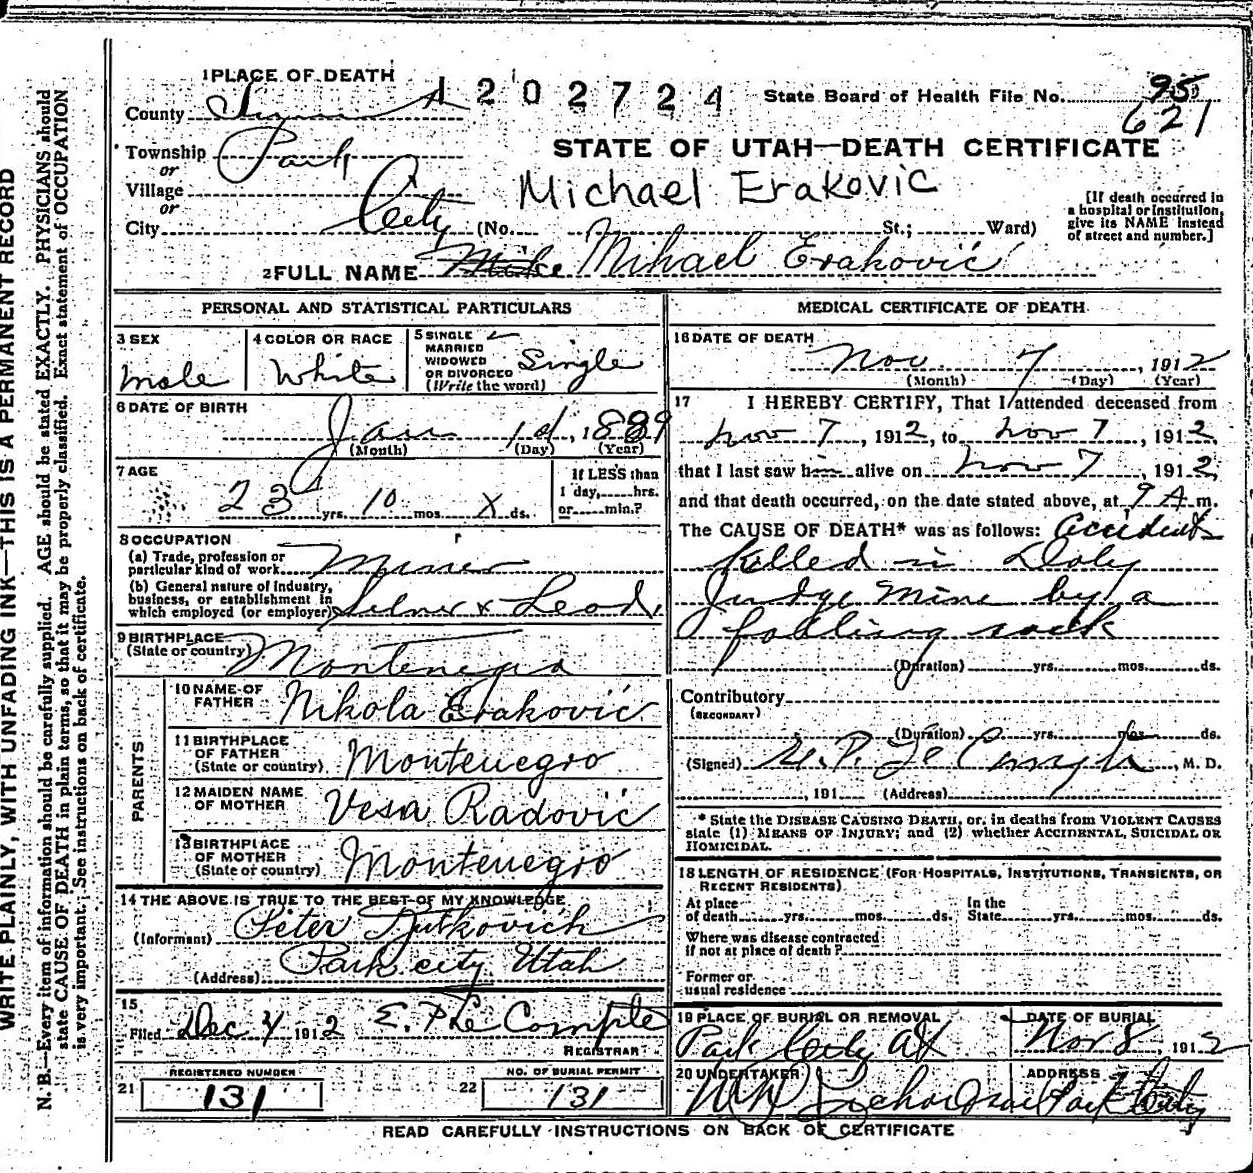 1 PLACE OF DEATH
1202724
State Board of Health File No. 95
621
County Summit
STATE OF UTAH—DEATH CERTIFICATE
Township Park
or
Village
or
City City (No. St.; Ward)
Michael Erakovic
[If death occurred in
a hospital or institution,
give its NAME instead
of street and number.]
2 FULL NAME Mike Mihael Eraković
PERSONAL AND STATISTICAL PARTICULARS
3 SEX
male
4 COLOR OR RACE
White
5 SINGLE
MARRIED
WIDOWED
OR DIVORCED
(Write the word)
Single
6 DATE OF BIRTH
Jan 1st, 1889
(Month) (Day) (Year)
7 AGE
23 yrs. 10 mos. X ds.
If LESS than
1 day,......hrs.
or......min.?
8 OCCUPATION
(a) Trade, profession or
particular kind of work Miner
(b) General nature of industry,
business, or establishment in
which employed (or employer) Silver & Lead.
9 BIRTHPLACE
(State or country) Montenegro
PARENTS
10 NAME OF
FATHER Nikola Eraković
11 BIRTHPLACE
OF FATHER
(State or country) Montenegro
12 MAIDEN NAME
OF MOTHER Vesa Radović
13 BIRTHPLACE
OF MOTHER
(State or country) Montenegro
14 THE ABOVE IS TRUE TO THE BEST OF MY KNOWLEDGE
(Informant) Peter
(Address) Park city Utah
15
Filed Dec 4 1912 E. P Le Compte
REGISTRAR
21 REGISTERED NUMBER
131
22 NO. OF BURIAL PERMIT
131
MEDICAL CERTIFICATE OF DEATH
16 DATE OF DEATH
Nov. 7, 1912
(Month) (Day) (Year)
17 I HEREBY CERTIFY, That I attended deceased from
Nov 7, 1912, to Nov 7, 1912,
that I last saw him alive on Nov 7, 1912,
and that death occurred, on the date stated above, at 9 A m.
The CAUSE OF DEATH* was as follows: Accident
Killed in Daly
Judge Mine by a
falling rock
(Duration) yrs. mos. ds.
Contributory
(SECONDARY)
(Duration) yrs. mos. ds.
(Signed) , M. D.
, 191 (Address)
* State the DISEASE CAUSING DEATH, or, in deaths from VIOLENT CAUSES
state (1) MEANS OF INJURY; and (2) whether ACCIDENTAL, SUICIDAL OR
HOMICIDAL.
18 LENGTH OF RESIDENCE (FOR HOSPITALS, INSTITUTIONS, TRANSIENTS, OR
RECENT RESIDENTS)
At place In the
of death yrs. mos. ds. State yrs. mos. ds.
Where was disease contracted
if not at place of death?
Former or
usual residence
19 PLACE OF BURIAL OR REMOVAL
Park City
DATE OF BURIAL
Nov 8, 1912
20 UNDERTAKER
ADDRESS
Park City
READ CAREFULLY INSTRUCTIONS ON BACK OF CERTIFICATE
WRITE PLAINLY, WITH UNFADING INK—THIS IS A PERMANENT RECORD
N. B.—Every item of information should be carefully supplied. AGE should be stated EXACTLY. PHYSICIANS should
state CAUSE OF DEATH in plain terms, so that it may be properly classified. Exact statement of OCCUPATION
is very important. See instructions on back of certificate.